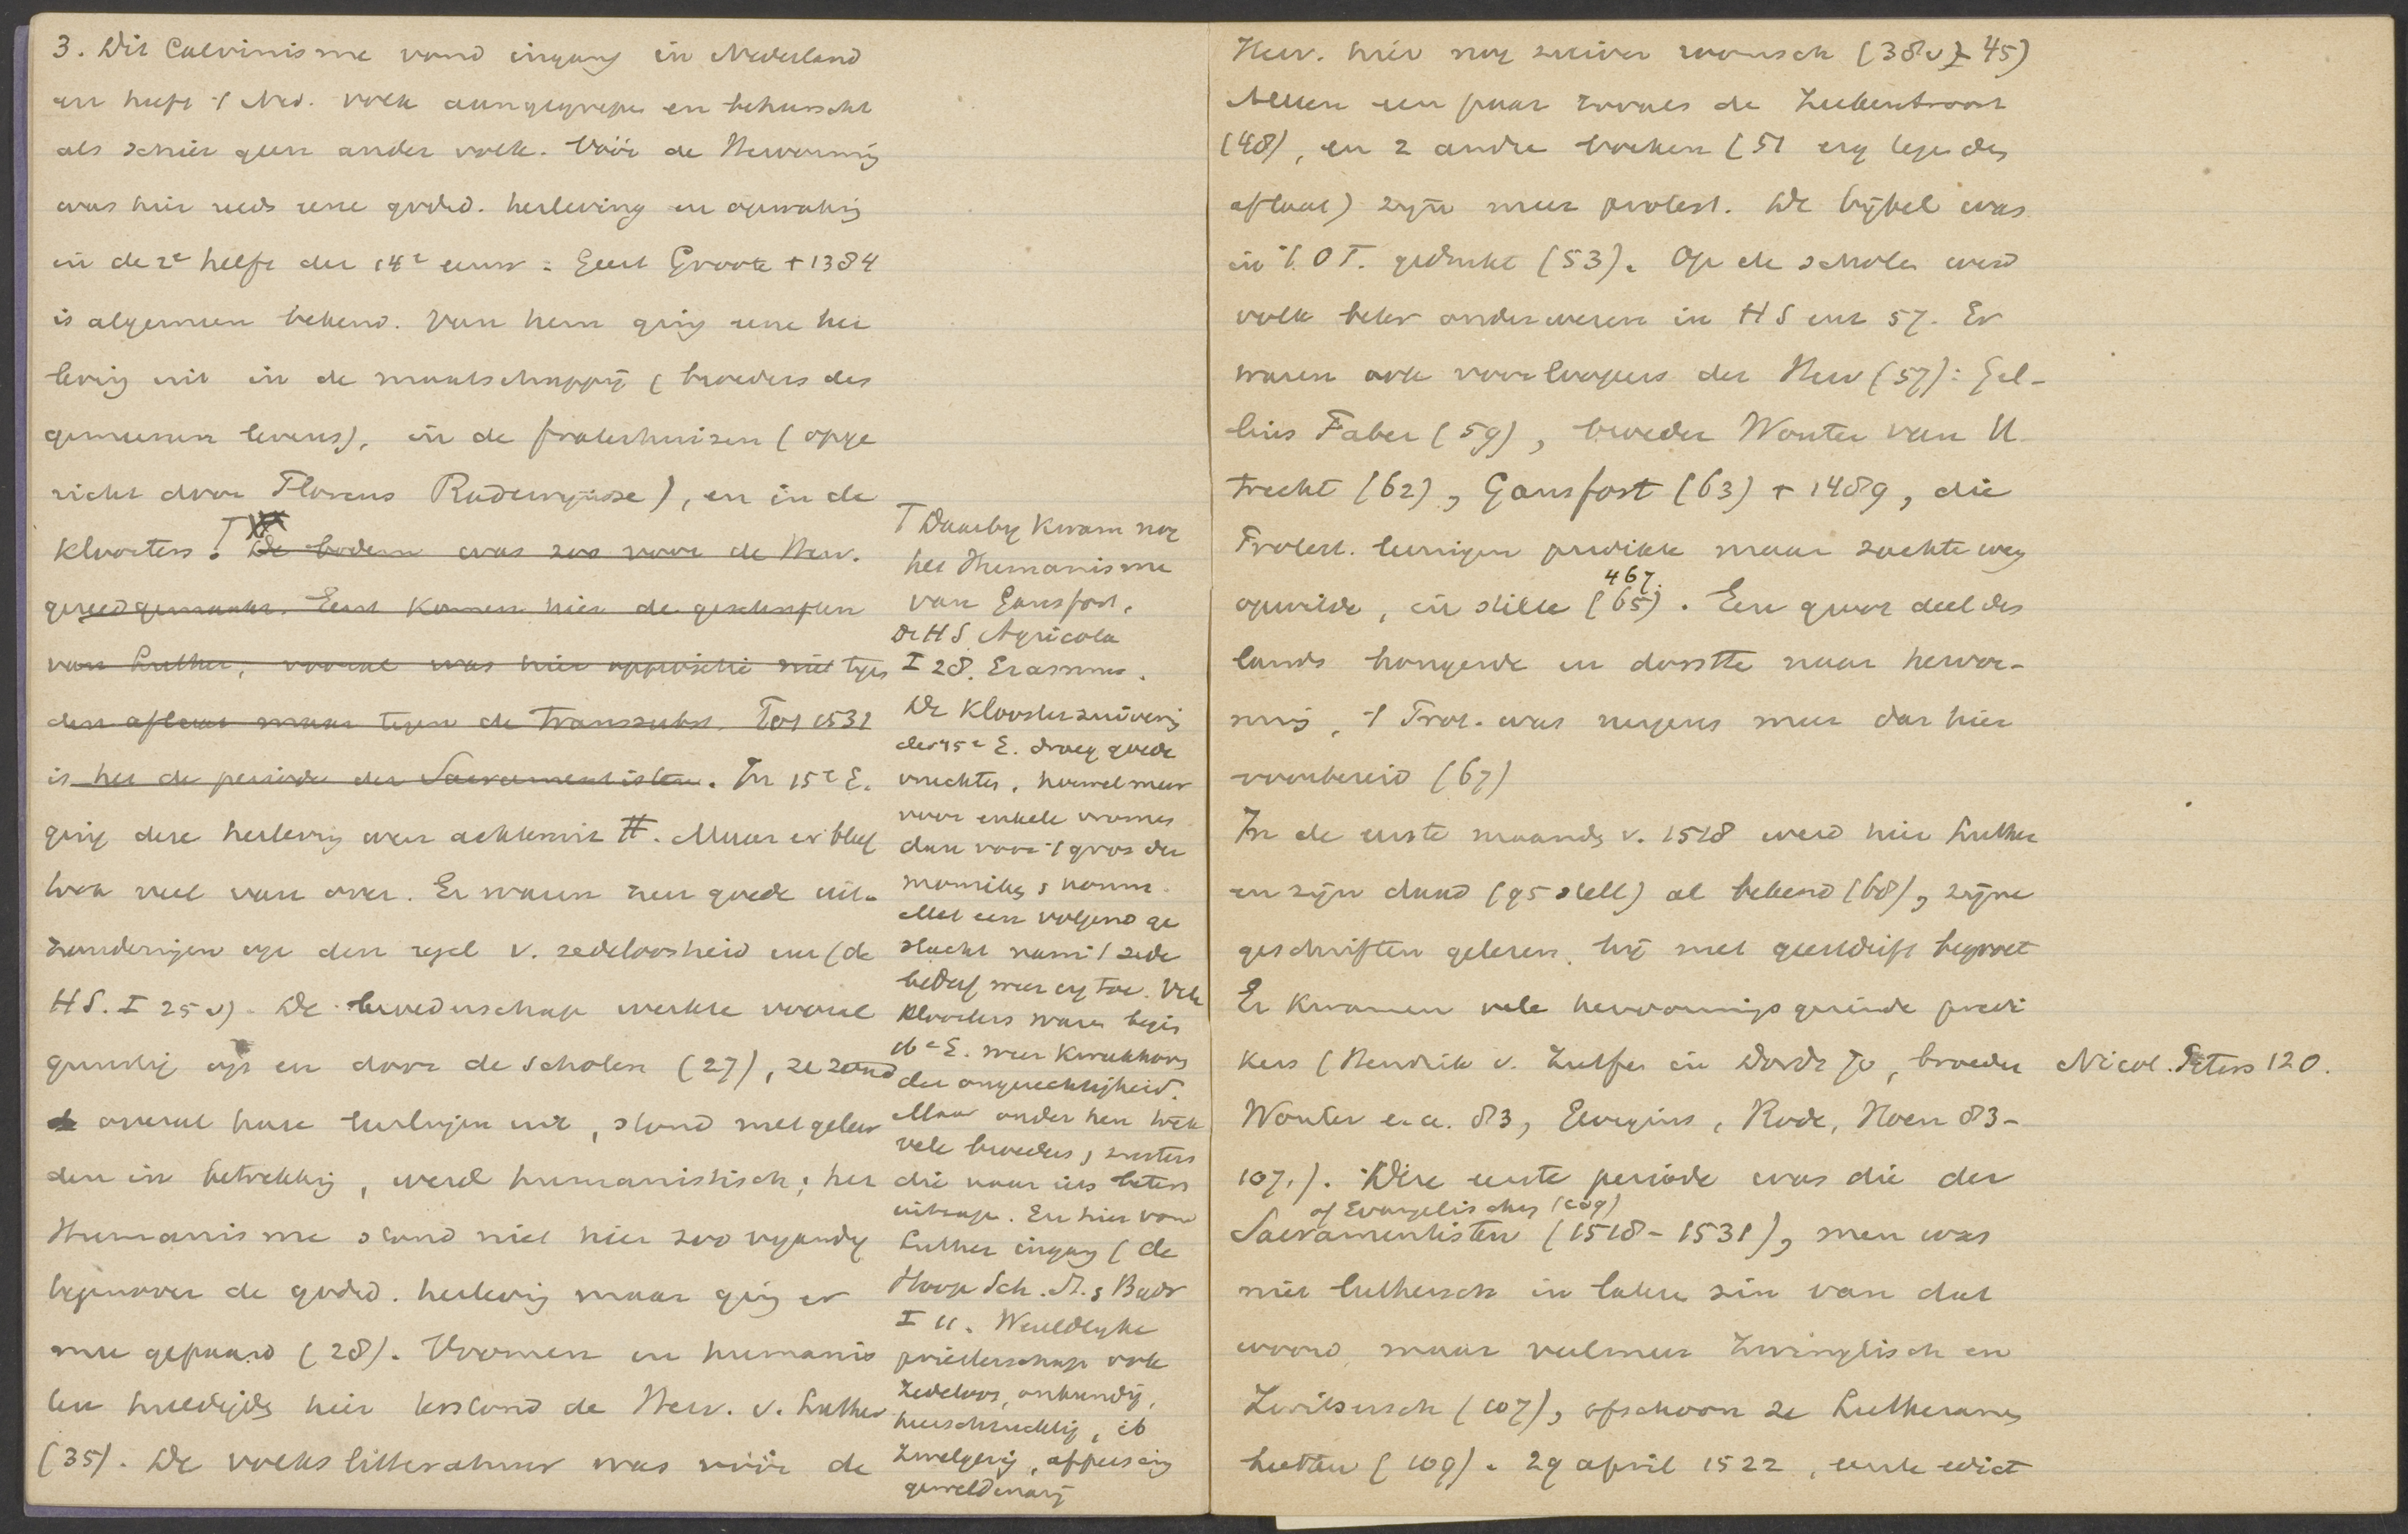 3. Dit Calvinisme vond ingang in Nederland
en heeft 't Ned. volk aangegrepen en beheerscht
als schier geen ander volk. Vóór de Hervorming
was hier reeds eene godsd. herleving en opwaking
in de 2e helft der 14e eeuw: Geert Groote † 1384
is algemeen bekend. Van hem ging eene her
leving uit in de maatschappij (broeders des
gemeenen levens), in de fraterhuizen (opge
richt door Florens Radewijnsz), en in de
kloosters. De bodem was zoo voor de Herv.
gereedgemaakt. Eerst komen hier de geschriften
van Luther, vooral was hier oppositie niet tegen
den aflaat maar tegen de transsubst. Tot 1531
is het de periode der Sacramentisten. In 15e E.
ging deze herleving weer achteruit #. Maar er bleef
toch veel van over. Er waren zeer goede uit-
zonderingen op den regel v. zedeloosheid enz (de
HS. I 25 v). De broederschap werkte vooral
gunstig op en door de scholen (27), ze zond
overal hare leerlingen uit, stond met geleer
den in betrekking, werd humanistisch; het
Humanisme stond niet hier zoo vijandig
tegenover de godsd. herleving maar ging er
mee gepaard (28). Vromen en humanis
ten huldigden hier test​ond de Herv. v. Luther
(35). De volkslitteratuur was vóór de
T Daarbij kwam nog
het Humanisme
van Gansfort,
De HS Agricola
I 28. Erasmus.
De kloosterzuivering
der 15e E. droeg goede
vruchten, hoewel meer
voor enkele vromen
dan voor 't gros der
monniken, nonnen.
Met een volgend ge
slacht nam 't zede
bederf weer erg toe. Vele
kloosters waren begin
16e E. weer kweekhoven
der ongerechtigheid.
Maar onder hen toch
vele broeders, zusters
die naar iets beters
uitzagen. En hier vond
Luther ingang (de
Hoop Sch. M. Bapt
I 11. Wereldlyke
priesterschap ook
zedeloos, onkundig,
heerschzuchtig, 16
zwelgerij, afpersing
geweldenarij
Herv. hier nog zuiver roomsch (38 v) 45)
Alleen een paar zooals de Zielentroost
(48), en 2 andre boeken (51 erg tegen des
aflaat) zijn meer protest. De bijbel was
in 't O T. gedrukt (53). Op de scholen werd
volk beter onderwezen in HS enz 57. Er
waren ook voorloopers der Herv (57): Gel-
lius Faber (59), broeder Wouter van U
trecht (62), Gansfort (63) † 1489, die
Protest. leeringen predikte maar zachte weg
467.
opwilde, in stilte (65). Een groot deel des
lands hongerde en dorstte naar hervor-
ming, 't Prot. was nergens meer dan hier
voorbereid (67)
In de eerste maanden v. 1518 werd hier Luther
en zijn daad (95 stell) al bekend (68), zijne
geschriften gelezen, hij met geestdrift begroet
Er kwamen vele hervormingsgezinde predi
kers (Hendrik v. Zutfen in Dordr 70, broeder Nicol. Peters 120.
Wouter e.a. 83, Elvigius, Rode, Hoen 83-
107.). Deze eerste periode was die der
of Evangelischen (109)
Sacramentisten (1518-1531), men was
niet luthersch in lateren zin van dat
woord, maar veelmeer Zwinglisch en
Zwitsersch (107), ofschoon ze Lutheranen
heetten (109). 29 april 1522, eerste edict